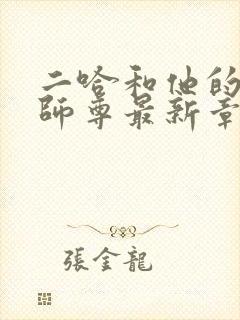 二哈和他的
師尊最新章
張金龍